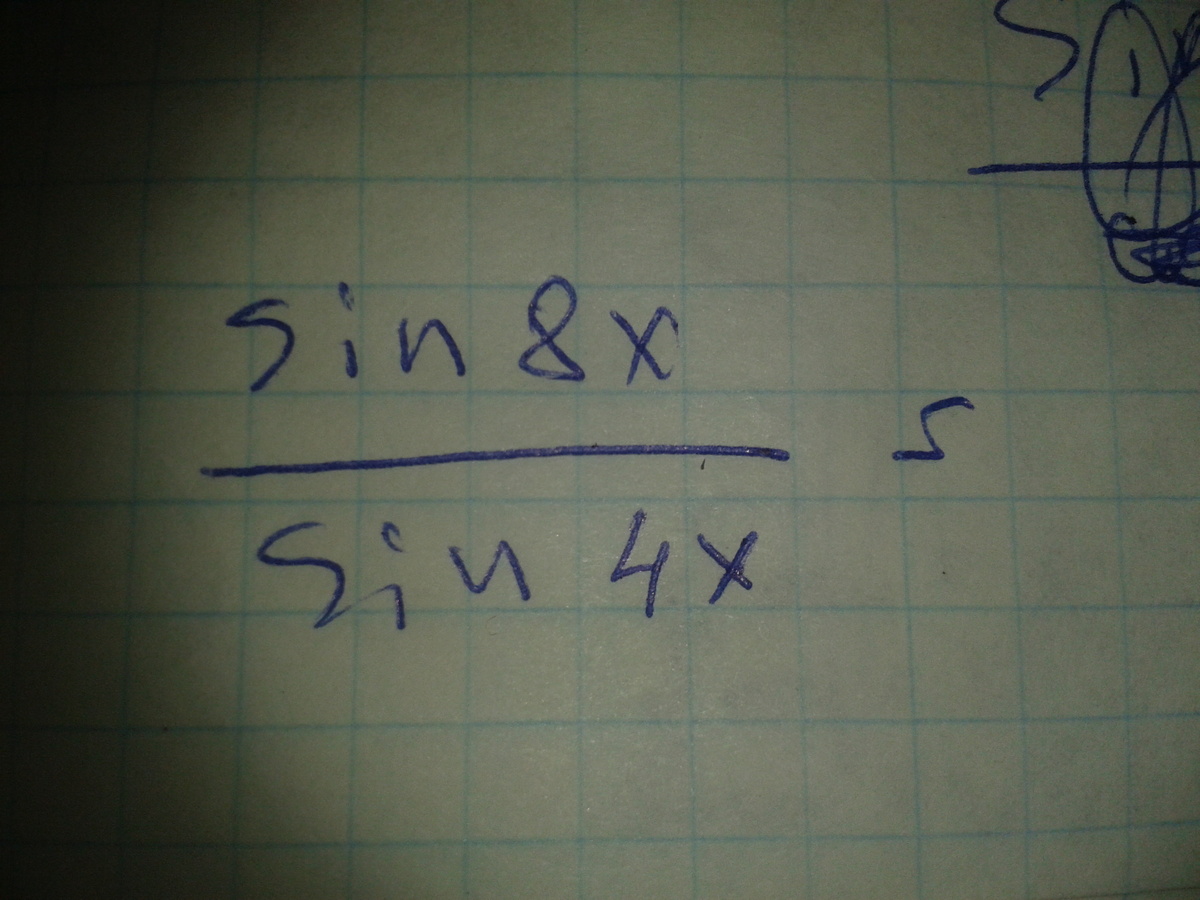 sin 8x
sin 4x